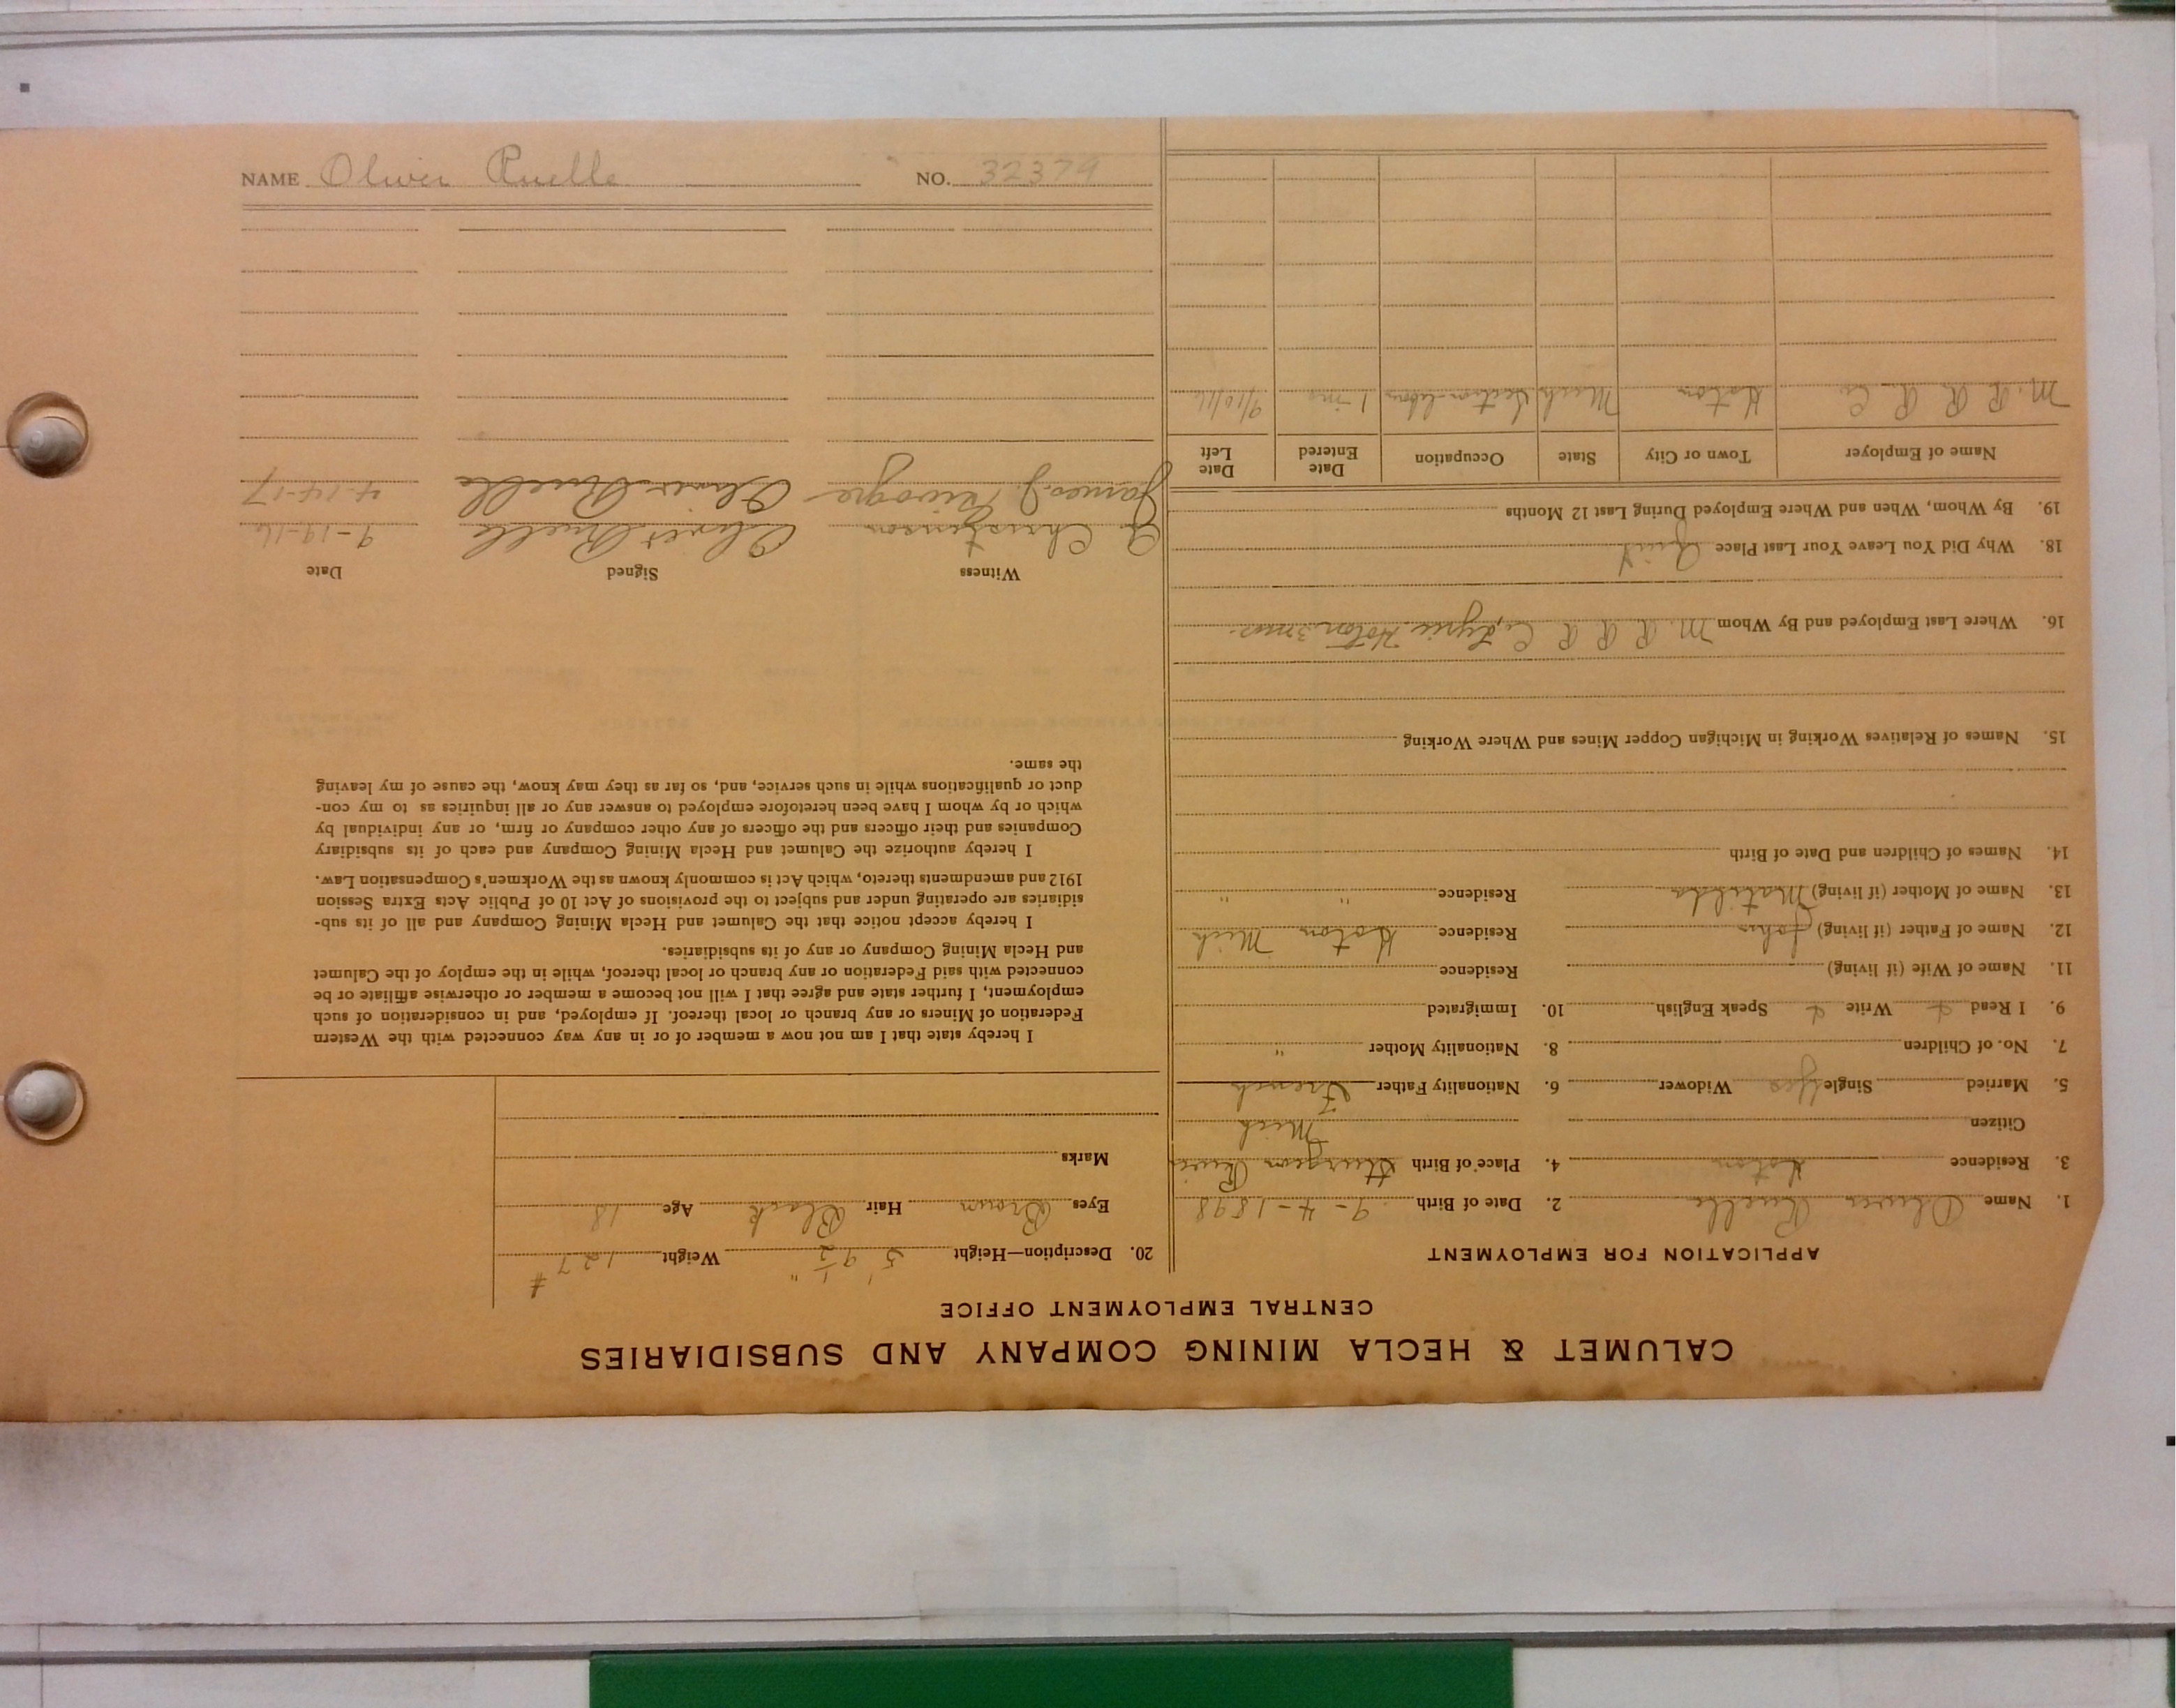 NAME Oliver Ruelle NO. 32379
CALUMET & HECLA MINING COMPANY AND SUBSIDIARIES
CENTRAL EMPLOYMENT OFFICE
APPLICATION FOR EMPLOYMENT
1. Name Oliver Ruelle 2. Date of Birth 9-4-1898
3. Residence Hoton 4. Place of Birth Sturgeon River
Citizen Mich
5. Married Single Yes Widower 6. Nationality Father French
7. No. of Children 8. Nationality Mother "
9. I Read Write Speak English 10. Immigrated
11. Name of Wife (if living) Residence
12. Name of Father (if living) John Residence Hoton Mich
13. Name of Mother (if living) Matilda Residence " "
14. Names of Children and Date of Birth
15. Names of Relatives Working in Michigan Copper Mines and Where Working
16. Where Last Employed and By Whom M. R R R Co Hoton 3 mos.
18. Why Did You Leave Your Last Place Quit
19. By Whom, When and Where Employed During Last 12 Months
Name of Employer Town or City State Occupation Date Entered Date Left
M. R R R Co Hoton Mich Section labor 9/10/16
20. Description—Height 5' 9½" Weight 127 #
Eyes Brown Hair Black Age 18
Marks
I hereby state that I am not now a member of or in any way connected with the Western
Federation of Miners or any branch or local thereof. If employed, and in consideration of such
employment, I further state and agree that I will not become a member or otherwise affiliate or be
connected with said Federation or any branch or local thereof, while in the employ of the Calumet
and Hecla Mining Company or any of its subsidiaries.
I hereby accept notice that the Calumet and Hecla Mining Company and all of its sub-
sidiaries are operating under and subject to the provisions of Act 10 of Public Acts Extra Session
1912 and amendments thereto, which Act is commonly known as the Workmen's Compensation Law.
I hereby authorize the Calumet and Hecla Mining Company and each of its subsidiary
Companies and their officers and the officers of any other company or firm, or any individual by
which or by whom I have been heretofore employed to answer any or all inquiries as to my con-
duct or qualifications while in such service, and, so far as they may know, the cause of my leaving
the same.
Witness Signed Date
Christenson Oliver Ruelle 9-19-16
James J. Oliver Ruelle 4-14-17